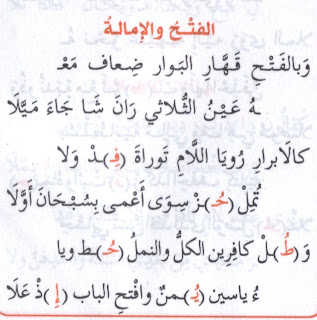 الفتْحُ والإمالـة
وَبالفَتْحِ قَـهَّارِ البَـوار ضِـعاف مَعْـ
ـهُ عَـيْنُ الثُّلاثي رَانَ شَـا جَاءَ مَيَّـلَا
كالَابرارِ رُويَا اللَّامِ تَوراةَ (فِـ)ـدْ وَلا
تُمِلْ (حُـ)ـزْ سِـوَى أَعْمَـى بِسُبْحَانَ أَوَّلَا
وَ (طُـ)ـلْ كافِرِين الكلُّ والنملُ (حُـ)ـط ويا
ءُ ياسين (يُـ)ـمنٌ وافْتحِ الباب (إِ)ذْ عَلَا